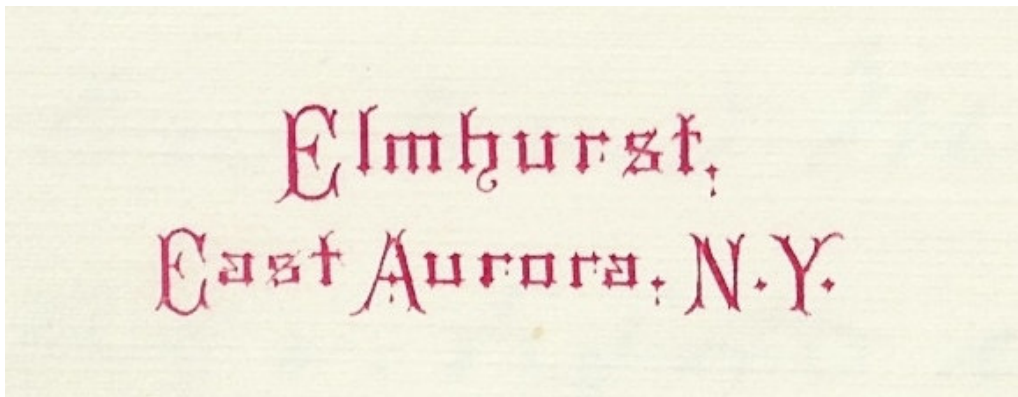 Elmhurst,
East Aurora, N.Y.